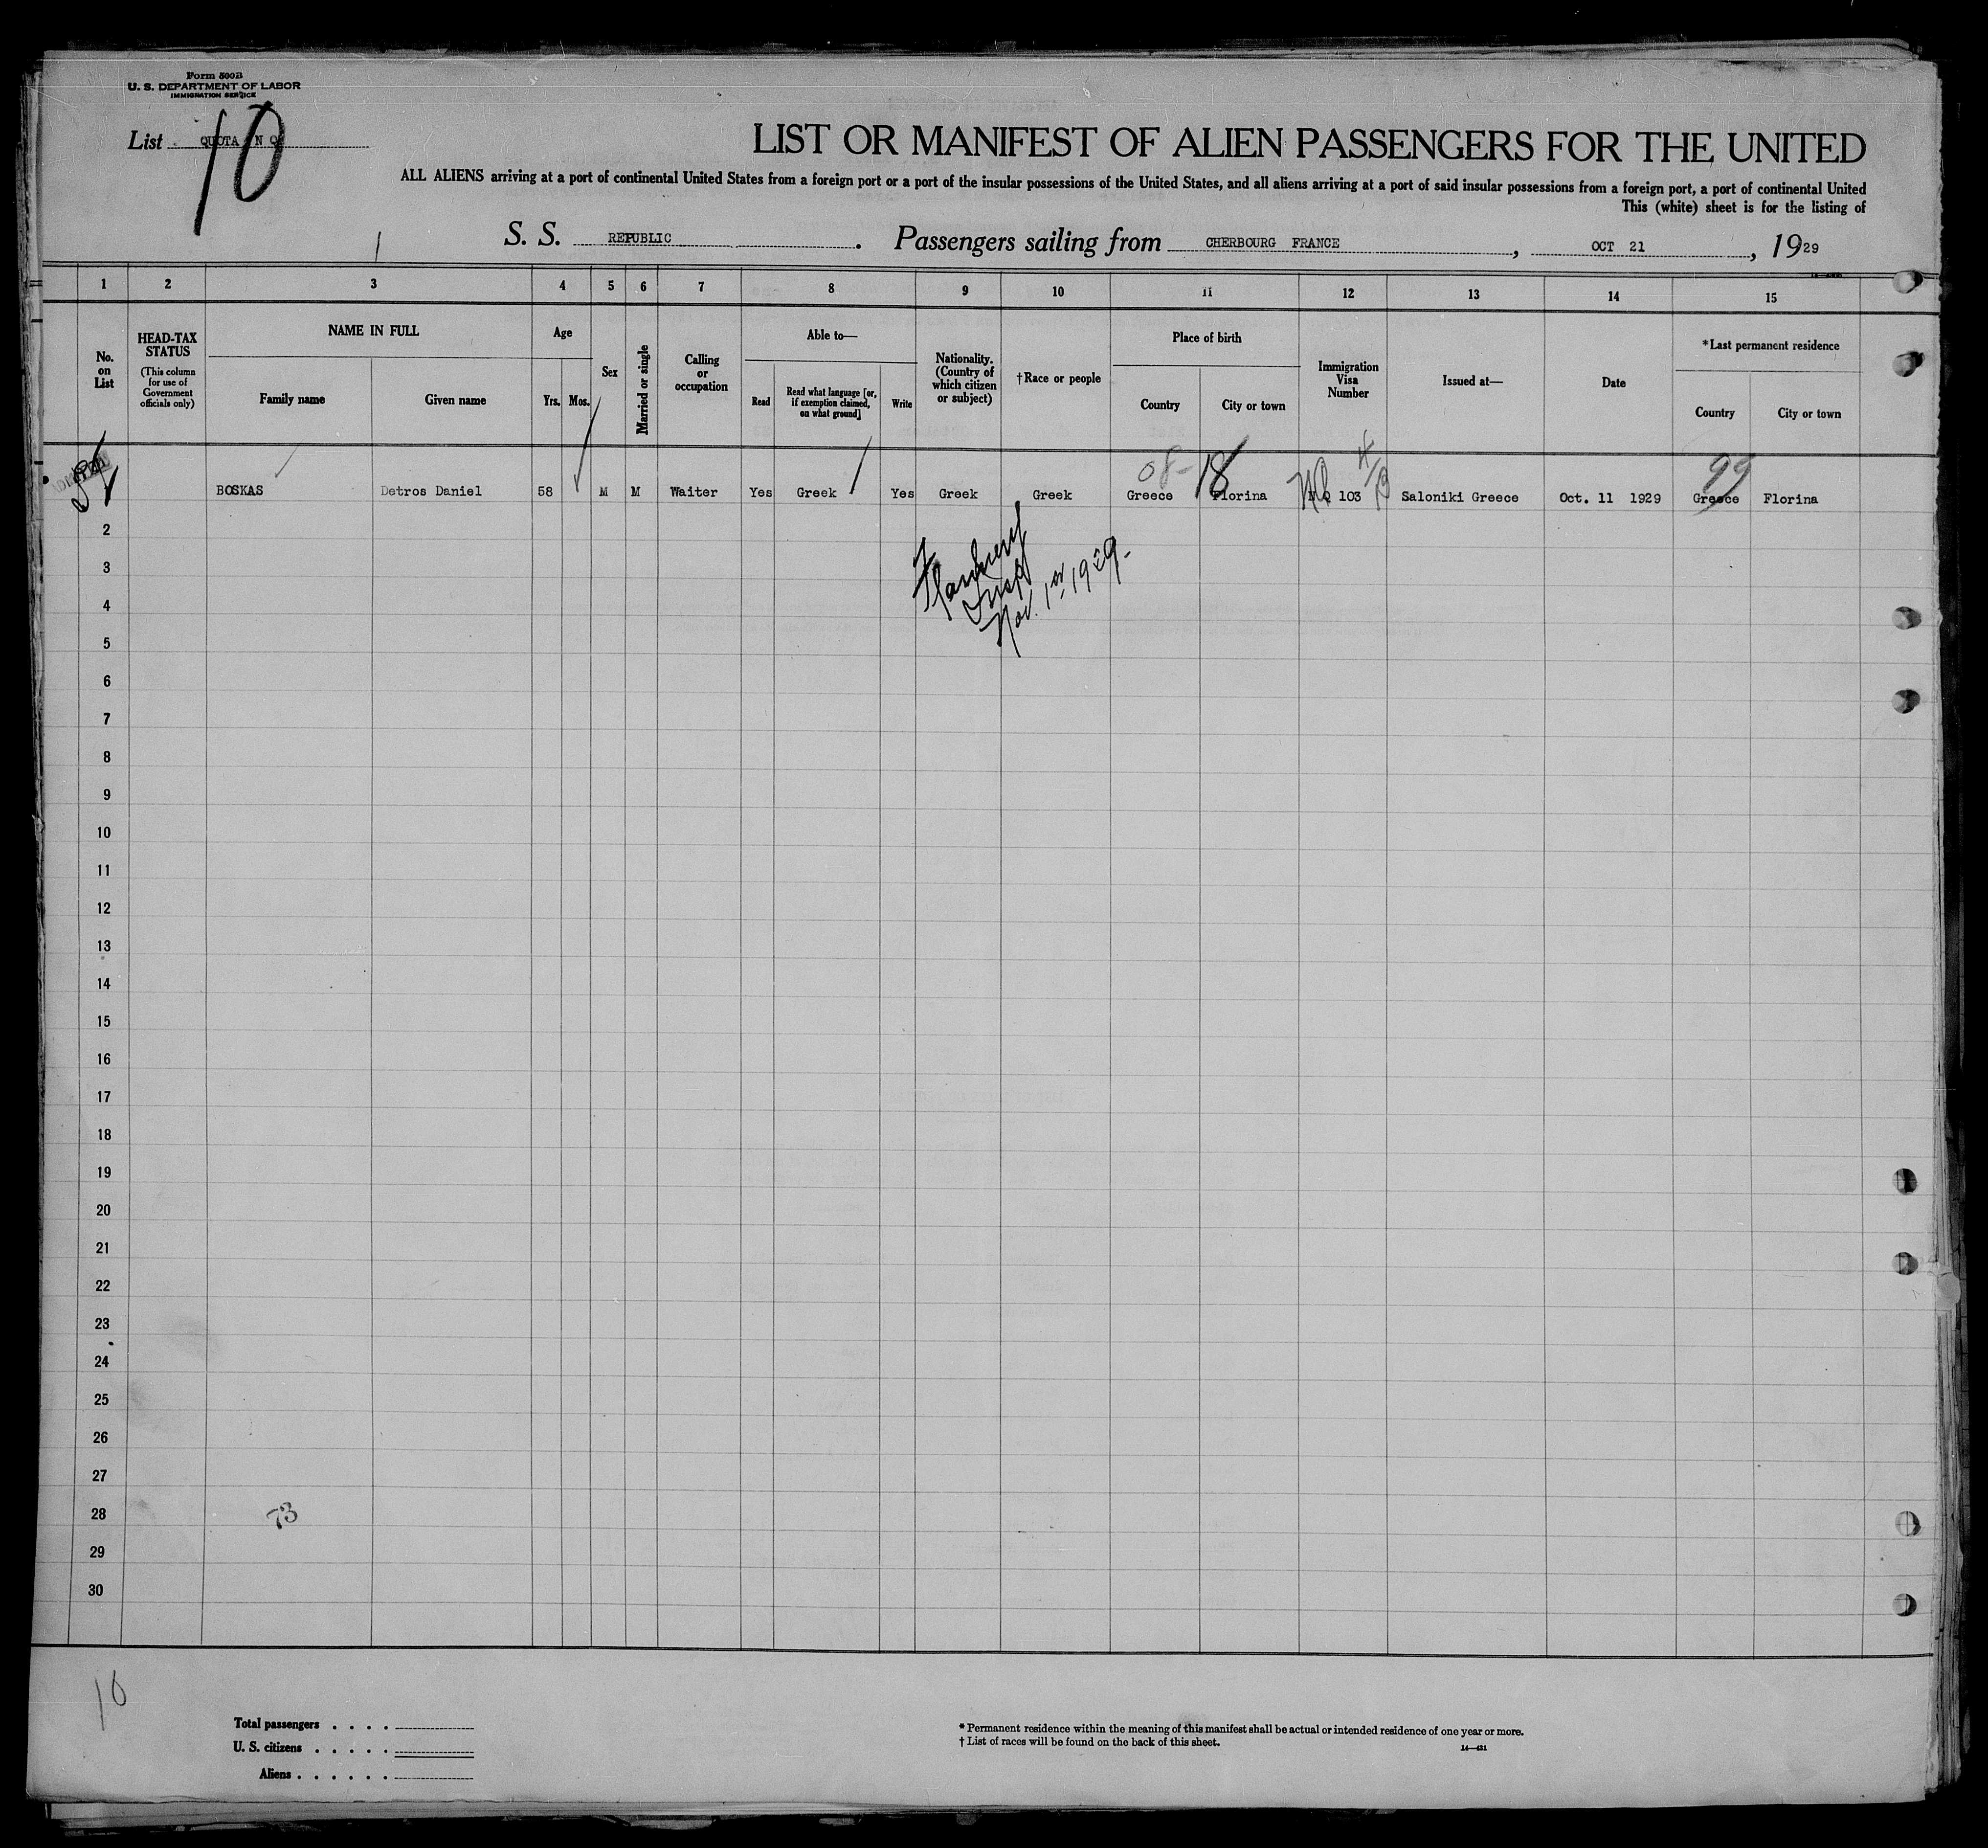 Form 500B
U. S. DEPARTMENT OF LABOR
IMMIGRATION SERVICE
List QUOTA IN Q
10
LIST OR MANIFEST OF ALIEN PASSENGERS FOR THE UNITED
ALL ALIENS arriving at a port of continental United States from a foreign port or a port of the insular possessions of the United States, and all aliens arriving at a port of said insular possessions from a foreign port, a port of continental United
This (white) sheet is for the listing of
1
S. S. REPUBLIC . Passengers sailing from CHERBOURG FRANCE , OCT 21 , 1929
1 2 3 4 5 6 7 8 9 10 11 12 13 14 15
No. on List
HEAD-TAX STATUS
(This column for use of Government officials only)
NAME IN FULL
Family name
Given name
Age
Yrs.
Mos.
Sex
Married or single
Calling or occupation
Able to—
Read
Read what language [or, if exemption claimed, on what ground]
Write
Nationality. (Country of which citizen or subject)
†Race or people
Place of birth
Country
City or town
Immigration Visa Number
Issued at—
Date
*Last permanent residence
Country
City or town
08- 18 99
BOSKAS Detros Daniel 58 M M Waiter Yes Greek Yes Greek Greek Greece Florina 103 Saloniki Greece Oct. 11 1929 Greece Florina
2
3
Insp
4
Nov. 1st 1929-
5
6
7
8
9
10
11
12
13
14
15
16
17
18
19
20
21
22
23
24
25
26
27
28
73
29
30
10
Total passengers . . . .
U. S. citizens . . . . .
Aliens . . . . . .
* Permanent residence within the meaning of this manifest shall be actual or intended residence of one year or more.
† List of races will be found on the back of this sheet.
14—431